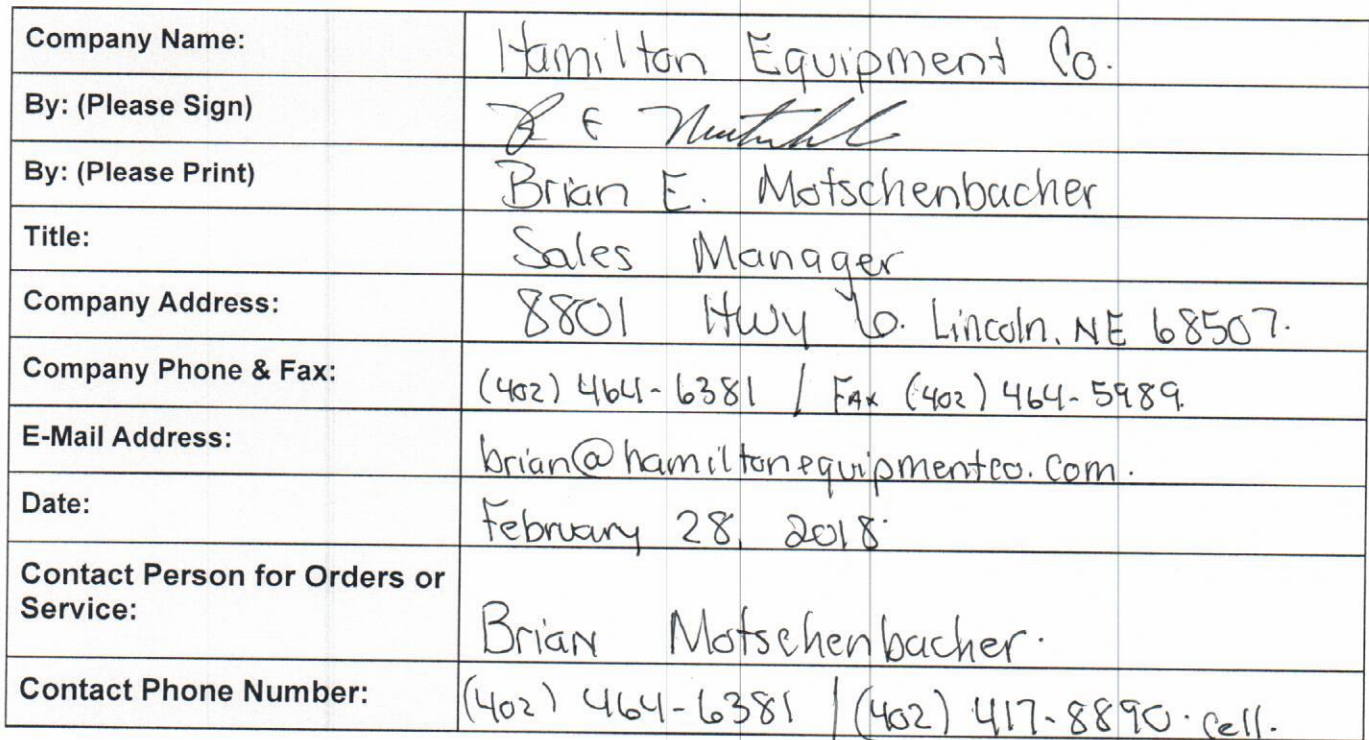 Company Name: Hamilton Equipment Co.
By: (Please Sign)
By: (Please Print) Brian E. Motschenbacher
Title: Sales Manager
Company Address: 8801 Hwy 6. Lincoln, NE 68507.
Company Phone & Fax: (402) 464-6381 / FAX (402) 464-5989.
E-Mail Address: brian@hamiltonequipmentco.com.
Date: February 28, 2018.
Contact Person for Orders or
Service: Brian Motschenbacher.
Contact Phone Number: (402) 464-6381 / (402) 417-8890. cell.